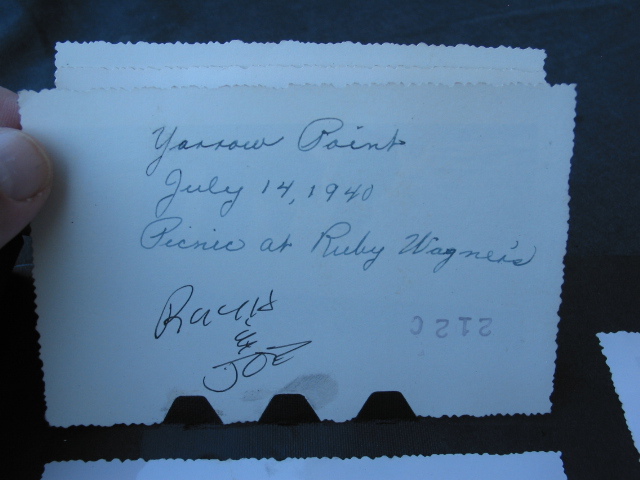 Yarrow Point
July 14, 1940
Picnic at Ruby Wagner's
JOE
212C